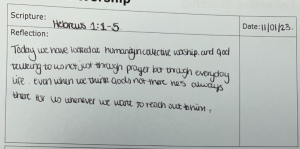 Scripture: Hebrews 1:1-5
Date: 11/01/23.
Reflection:
Today we have looked at humanity in collective worship. and God
talking to us not just through prayer but through everyday
life. even when we think Gods not there he's always
there for us whenever we want to reach out to him.